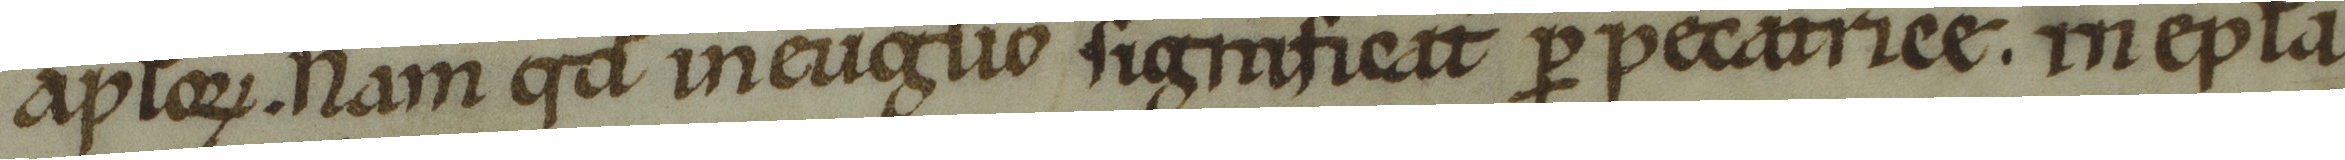 apłoꝝ. Nam qđ in euglio significat ꝑ pecatrice. in epła